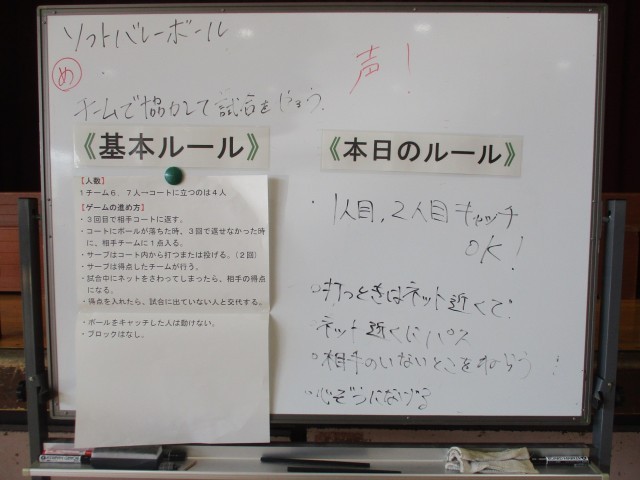 ソフトバレーボール
声!
め
チームで協力して試合をしよう。
《基本ルール》
【人数】
1チーム6、7人→コートに立つのは4人
【ゲームの進め方】
・3回目で相手コートに返す。
・コートにボールが落ちた時、3回で返せなかった時
に、相手チームに1点入る。
・サーブはコート内から打つまたは投げる。(2回)
・サーブは得点したチームが行う。
・試合中にネットをさわってしまったら、相手の得点
になる。
・得点を入れたら、試合に出ていない人と交代する。
・ボールをキャッチした人は動けない。
・ブロックはなし。
《本日のルール》
・1人目、2人目キャッチ
OK!
○打つときはネット近くで
ネット近くにパス
○相手のいないとこをねらう!
○心ぞうになげる